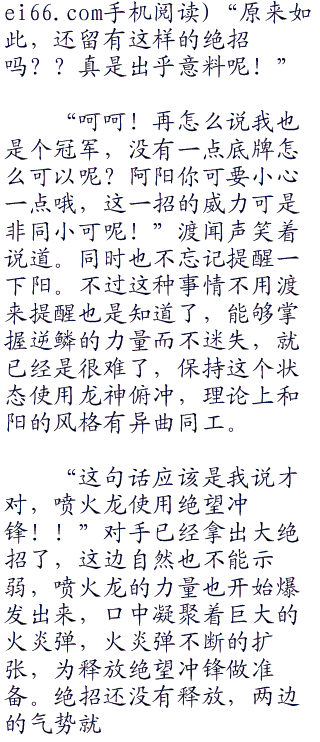 ei66.com手机阅读)“原来如
此，还留有这样的绝招
吗？？真是出乎意料呢！”
“呵呵！再怎么说我也
是个冠军，没有一点底牌怎
么可以呢？阿阳你可要小心
一点哦，这一招的威力可是
非同小可呢！”渡闻声笑着
说道。同时也不忘记提醒一
下阳。不过这种事情不用渡
来提醒也是知道了，能够掌
握逆鳞的力量而不迷失，就
已经是很难了，保持这个状
态使用龙神俯冲，理论上和
阳的风格有异曲同工。
“这句话应该是我说才
对，喷火龙使用绝望冲
锋！！”对手已经拿出大绝
招了，这边自然也不能示
弱，喷火龙的力量也开始爆
发出来，口中凝聚着巨大的
火炎弹，火炎弹不断的扩
张，为释放绝望冲锋做准
备。绝招还没有释放，两边
的气势就